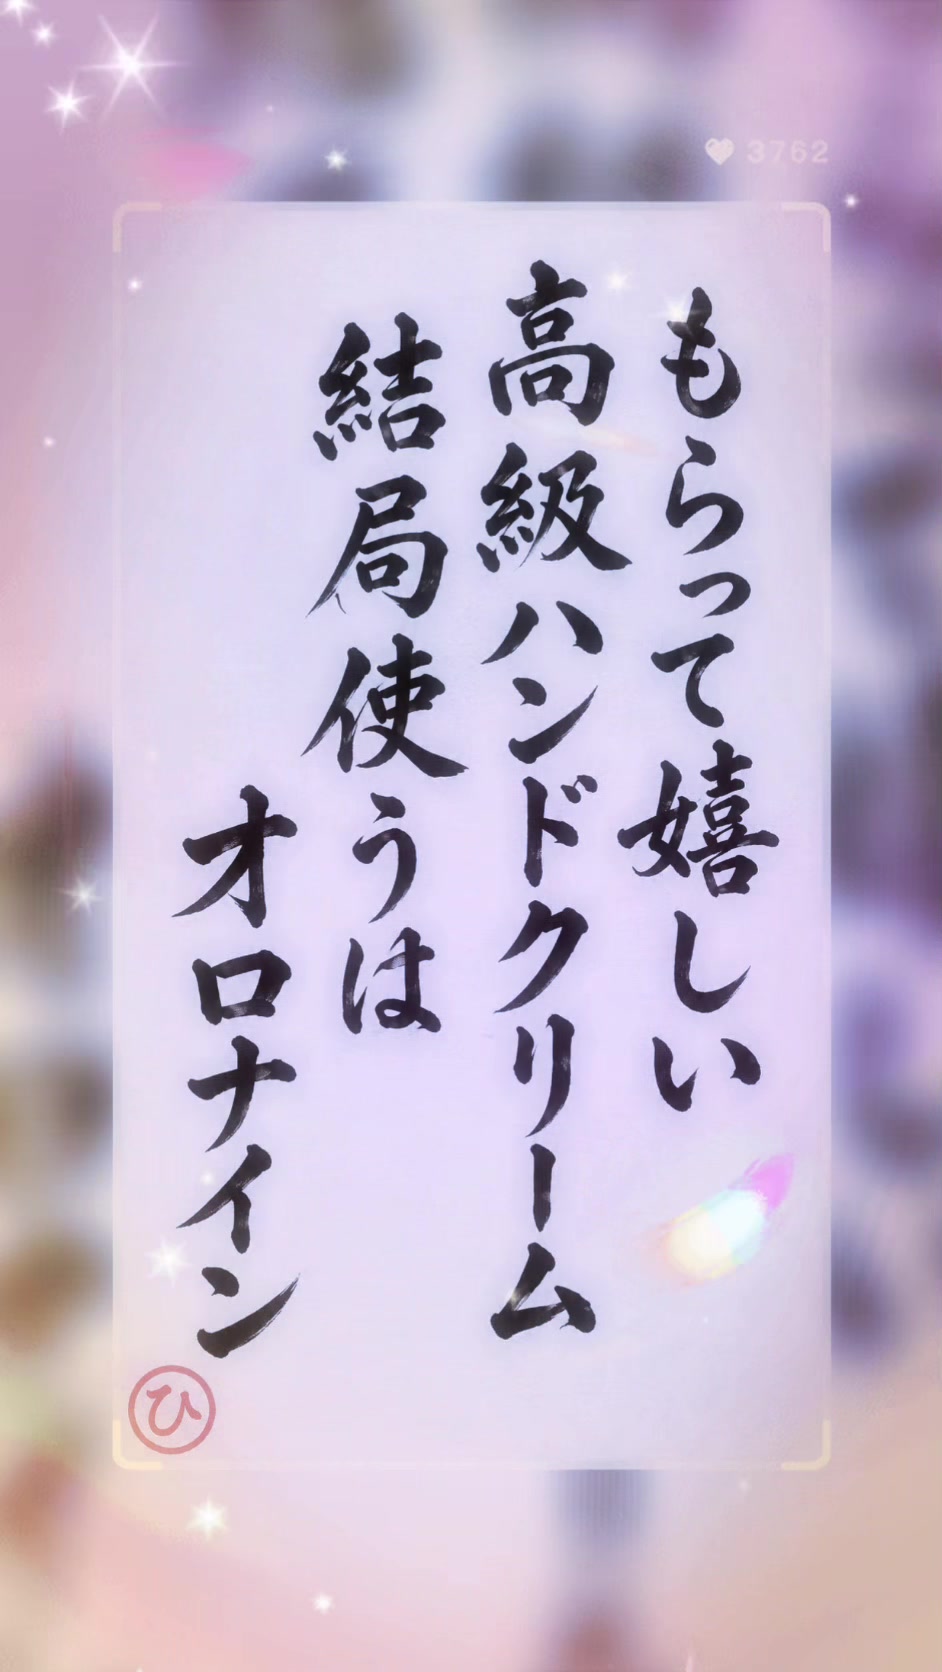 ♥ 3762
もらって嬉しい
高級ハンドクリーム
結局使うは
オロナイン
ひ